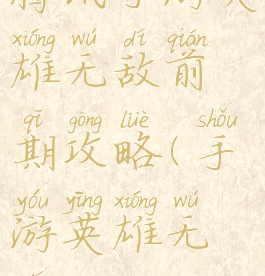 xióng wú dí qián
雄无敌前
qī gōng lüè shǒu
期攻略(手
yóu yīng xióng wú
游英雄无